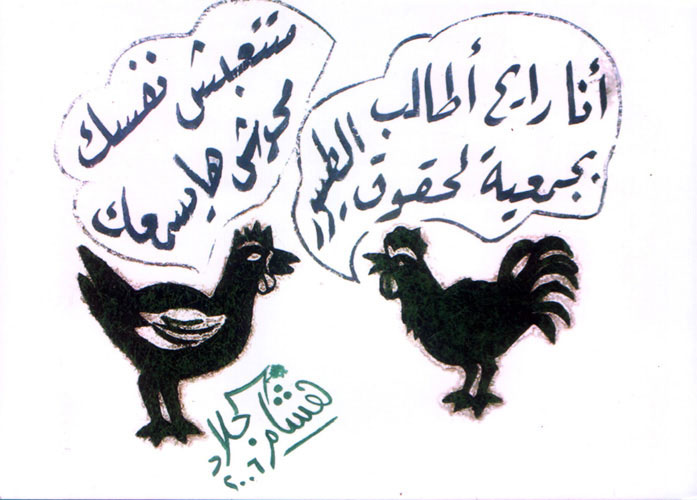 أنا رايح أطالب
بجمعية لحقوق الطيور
متتعبش نفسك
محدش هايسمعك
هشام الجلاد
٢٠٠٦